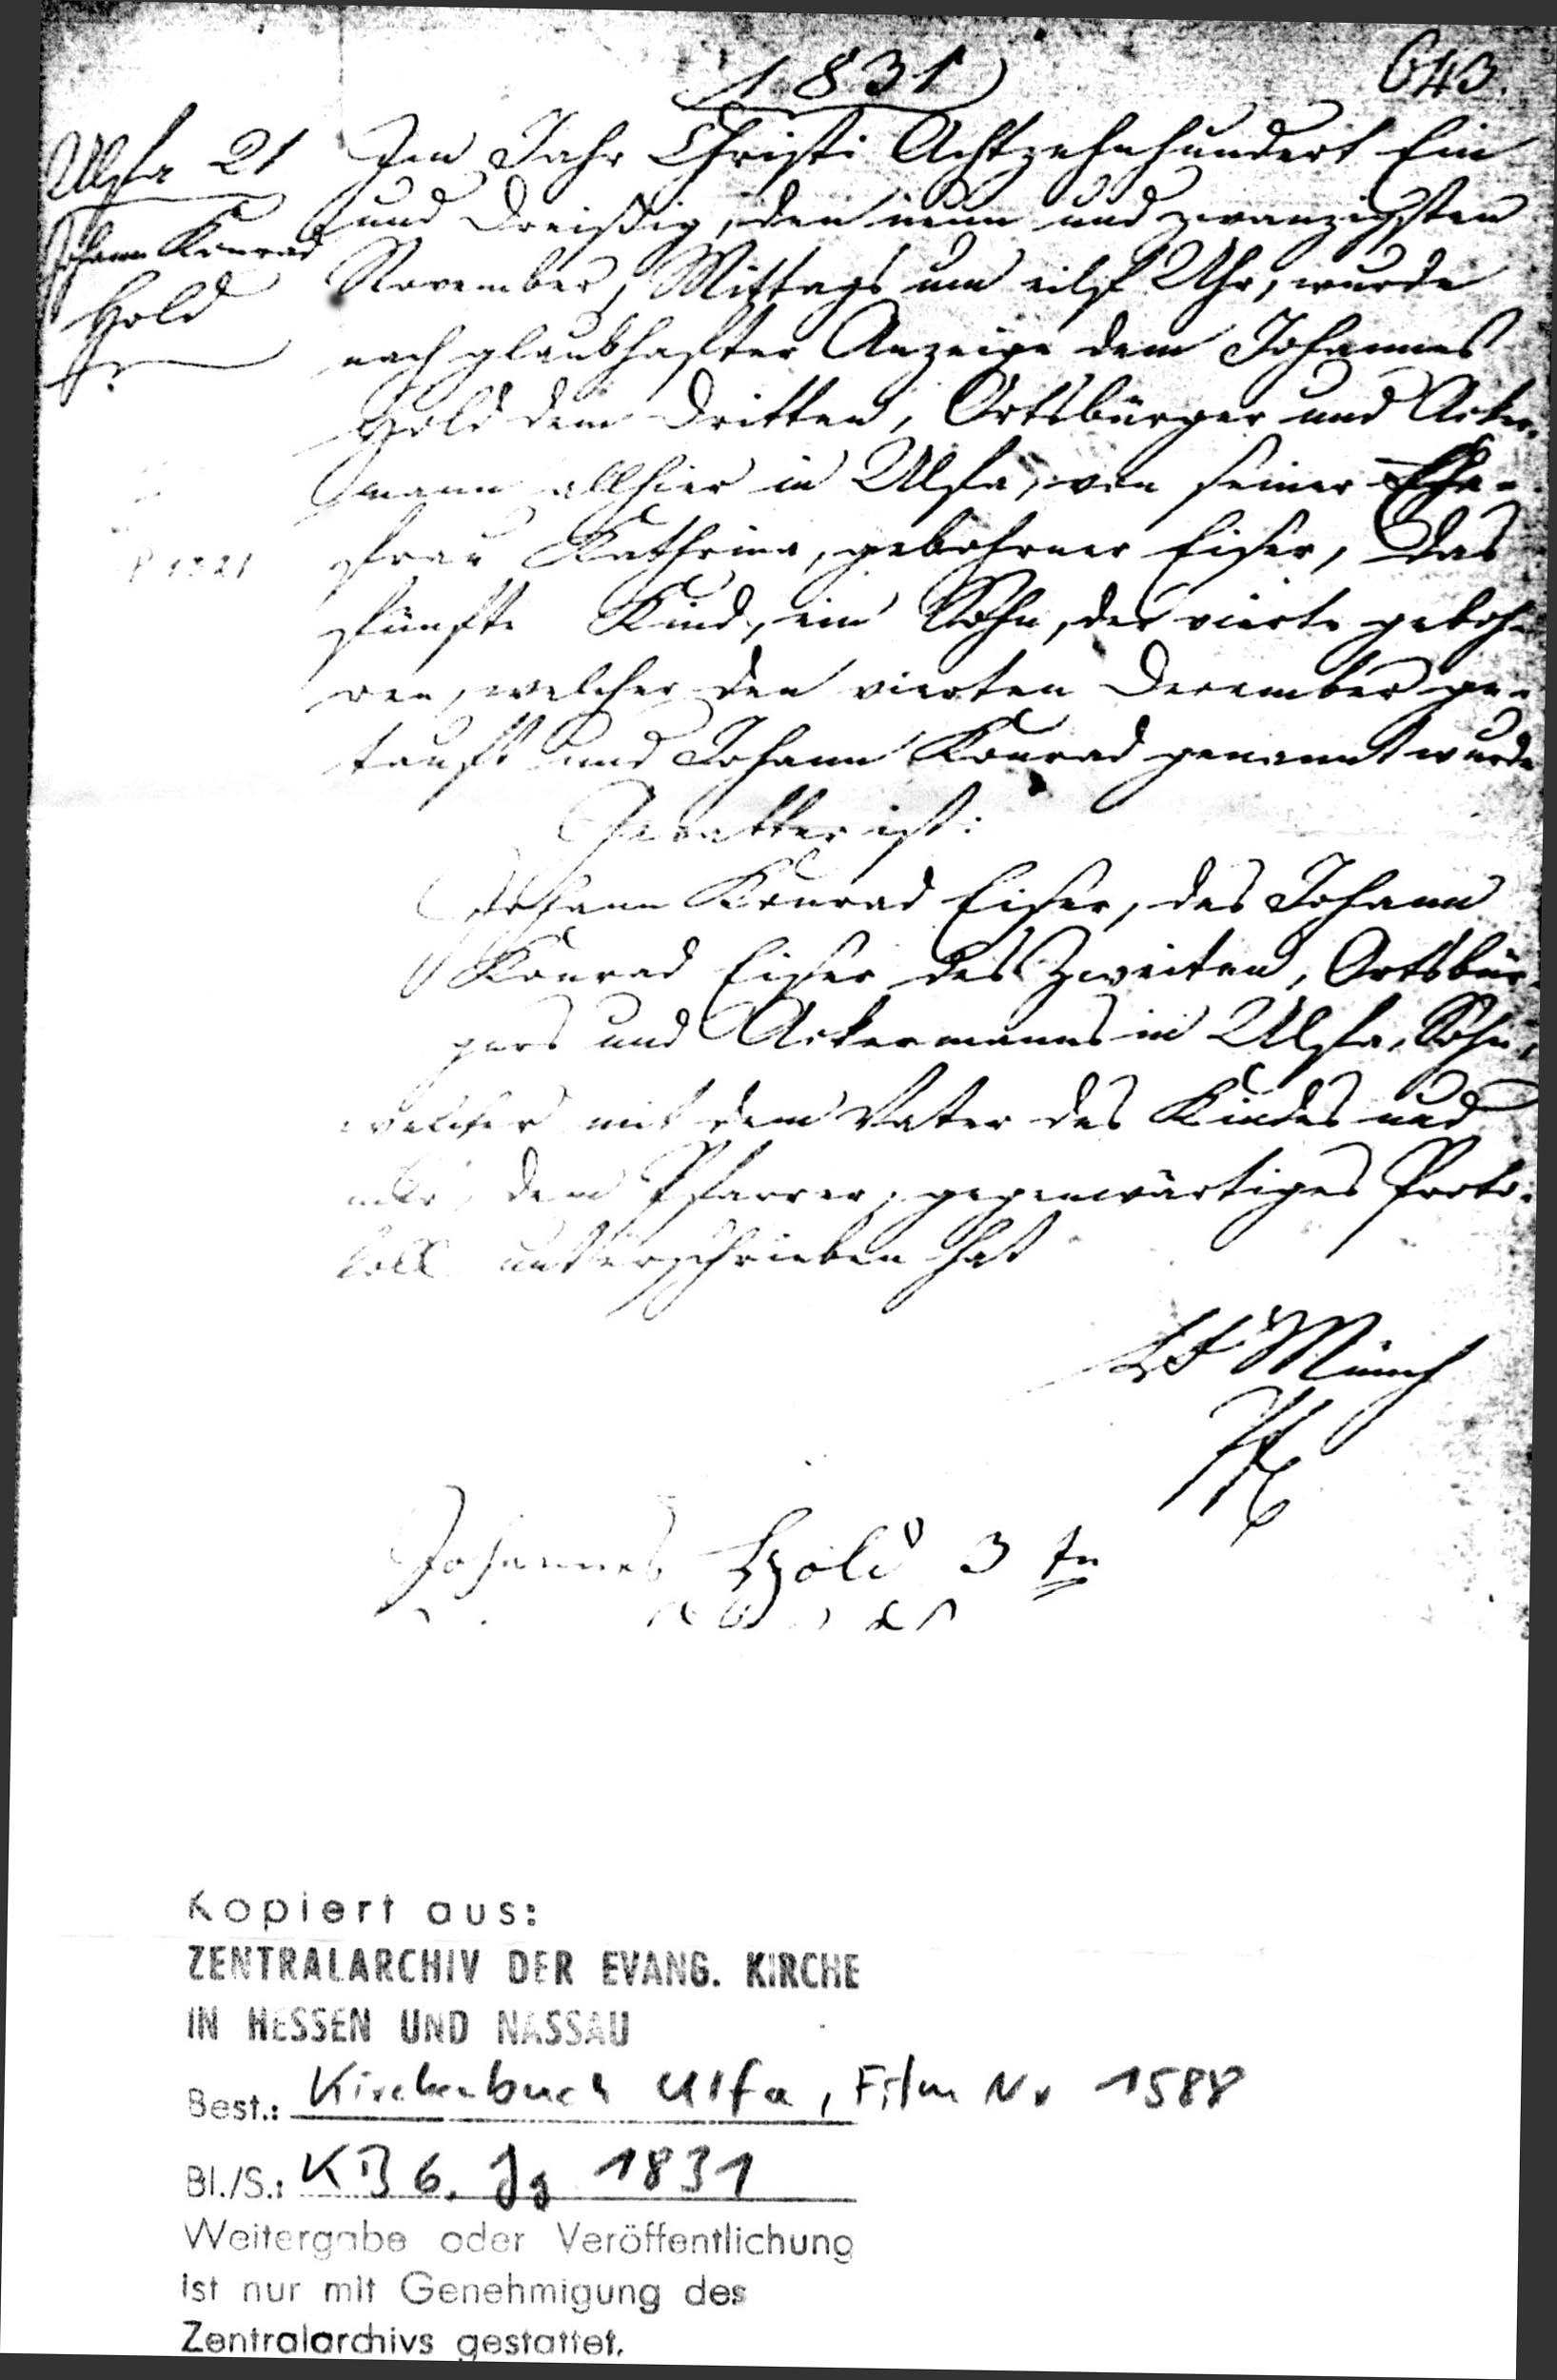 1831
643.
Ulfa 21
Johann Konrad
Hold
Im Jahr Christi Achtzehnhundert Ein
und dreißig, den neun und zwanzigsten
November, Mittags um eilf Uhr, wurde
nach glaubhafter Anzeige dem Johannes
Hold dem dritten, Ortsbürger und Acker-
mann allhier in Ulfa, von seiner Ehe-
frau Kathrina, gebohrner Eiser, das
fünfte Kind, ein Sohn, der vierte geboh-
ren, welcher den vierten December ge-
tauft und Johann Konrad genannt wurde
Gevatter ist:
Johann Konrad Eiser, des Johann
Konrad Eiser des Zweiten, Ortsbür-
gers und Ackermanns in Ulfa, Sohn,
welcher mit dem Vater des Kindes und
mir, dem Pfarrer, gegenwärtiges Proto-
koll unterschrieben hat
Münch
Johannes Hold 3 tn
Kopiert aus:
ZENTRALARCHIV DER EVANG. KIRCHE
IN HESSEN UND NASSAU
Best.: Kirchenbuch Ulfa, Film Nr 1588
Bl./S.: KB 6. Jg 1831
Weitergabe oder Veröffentlichung
ist nur mit Genehmigung des
Zentralarchivs gestattet.